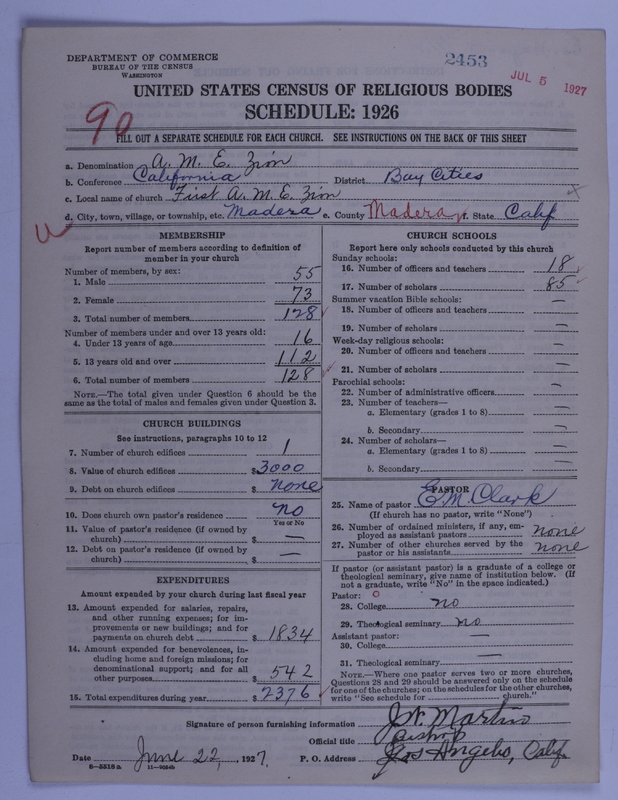 DEPARTMENT OF COMMERCE
BUREAU OF THE CENSUS
WASHINGTON
2453
JUL 5 1927
UNITED STATES CENSUS OF RELIGIOUS BODIES
SCHEDULE: 1926
90
FILL OUT A SEPARATE SCHEDULE FOR EACH CHURCH. SEE INSTRUCTIONS ON THE BACK OF THIS SHEET
a. Denomination A. M. E. Zion
b. Conference California District Bay Cities
c. Local name of church First A. M. E. Zion
d. City, town, village, or township, etc. Madera e. County Madera f. State Calif
MEMBERSHIP
Report number of members according to definition of
member in your church
Number of members, by sex:
1. Male 55
2. Female 73
3. Total number of members 128
Number of members under and over 13 years old:
4. Under 13 years of age 16
5. 13 years old and over 112
6. Total number of members 128
NOTE.—The total given under Question 6 should be the
same as the total of males and females given under Question 3.
CHURCH BUILDINGS
See instructions, paragraphs 10 to 12
7. Number of church edifices 1
8. Value of church edifices $3000
9. Debt on church edifices $ none
10. Does church own pastor's residence no
Yes or No
11. Value of pastor's residence (if owned by
church) $ —
12. Debt on pastor's residence (if owned by
church) $ —
EXPENDITURES
Amount expended by your church during last fiscal year
13. Amount expended for salaries, repairs,
and other running expenses; for im-
provements or new buildings; and for
payments on church debt $ 1834
14. Amount expended for benevolences, in-
cluding home and foreign missions; for
denominational support; and for all
other purposes $ 542
15. Total expenditures during year $ 2376
CHURCH SCHOOLS
Report here only schools conducted by this church
Sunday schools:
16. Number of officers and teachers 18
17. Number of scholars 85
Summer vacation Bible schools:
18. Number of officers and teachers —
19. Number of scholars —
Week-day religious schools:
20. Number of officers and teachers —
21. Number of scholars —
Parochial schools:
22. Number of administrative officers —
23. Number of teachers—
a. Elementary (grades 1 to 8) —
b. Secondary —
24. Number of scholars—
a. Elementary (grades 1 to 8) —
b. Secondary —
PASTOR
25. Name of pastor E. M. Clark
(If church has no pastor, write "None")
26. Number of ordained ministers, if any, em-
ployed as assistant pastors none
27. Number of other churches served by the
pastor or his assistants none
If pastor (or assistant pastor) is a graduate of a college or
theological seminary, give name of institution below. (If
not a graduate, write "No" in the space indicated.)
Pastor: 0
28. College no
29. Theological seminary no
Assistant pastor:
30. College —
31. Theological seminary —
NOTE.—Where one pastor serves two or more churches,
Questions 28 and 29 should be answered only on the schedule
for one of the churches; on the schedules for the other churches,
write "See schedule for church."
Signature of person furnishing information J. W. Martin
Official title Bishop
Date June 22, 1927. P. O. Address Los Angeles, Calif.
8—5518 a 11—9054b